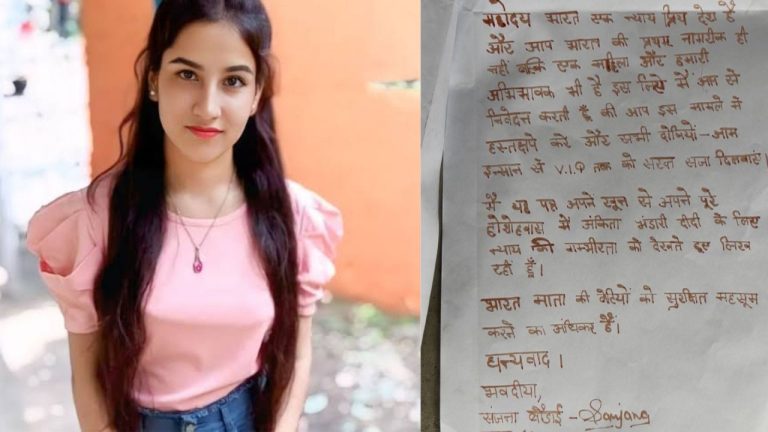 महोदय भारत एक न्याय प्रिय देश है
और आप भारत की प्रथम नागरीक ही
नहीं बल्कि एक महिला और हमारी
अभिभावक भी है इस लिए मैं आप से
निवेदन करती हूँ की आप इस मामले में
हस्तक्षेप करे और सभी दोषियों - आम
इन्सान से V.I.P तक को सख्त सजा दिलवाएं।
मैं यह पत्र अपने खून से अपने पूरे
होशोहवास में अंकिता भंडारी दीदी के लिए
न्याय की गम्भीरता को देखते हुए लिख
रही हूँ।
भारत माता की बेटियों को सुरक्षित महसूस
करने का अधिकार है।
धन्यवाद।
भवदीया,
संजना - Sanjana